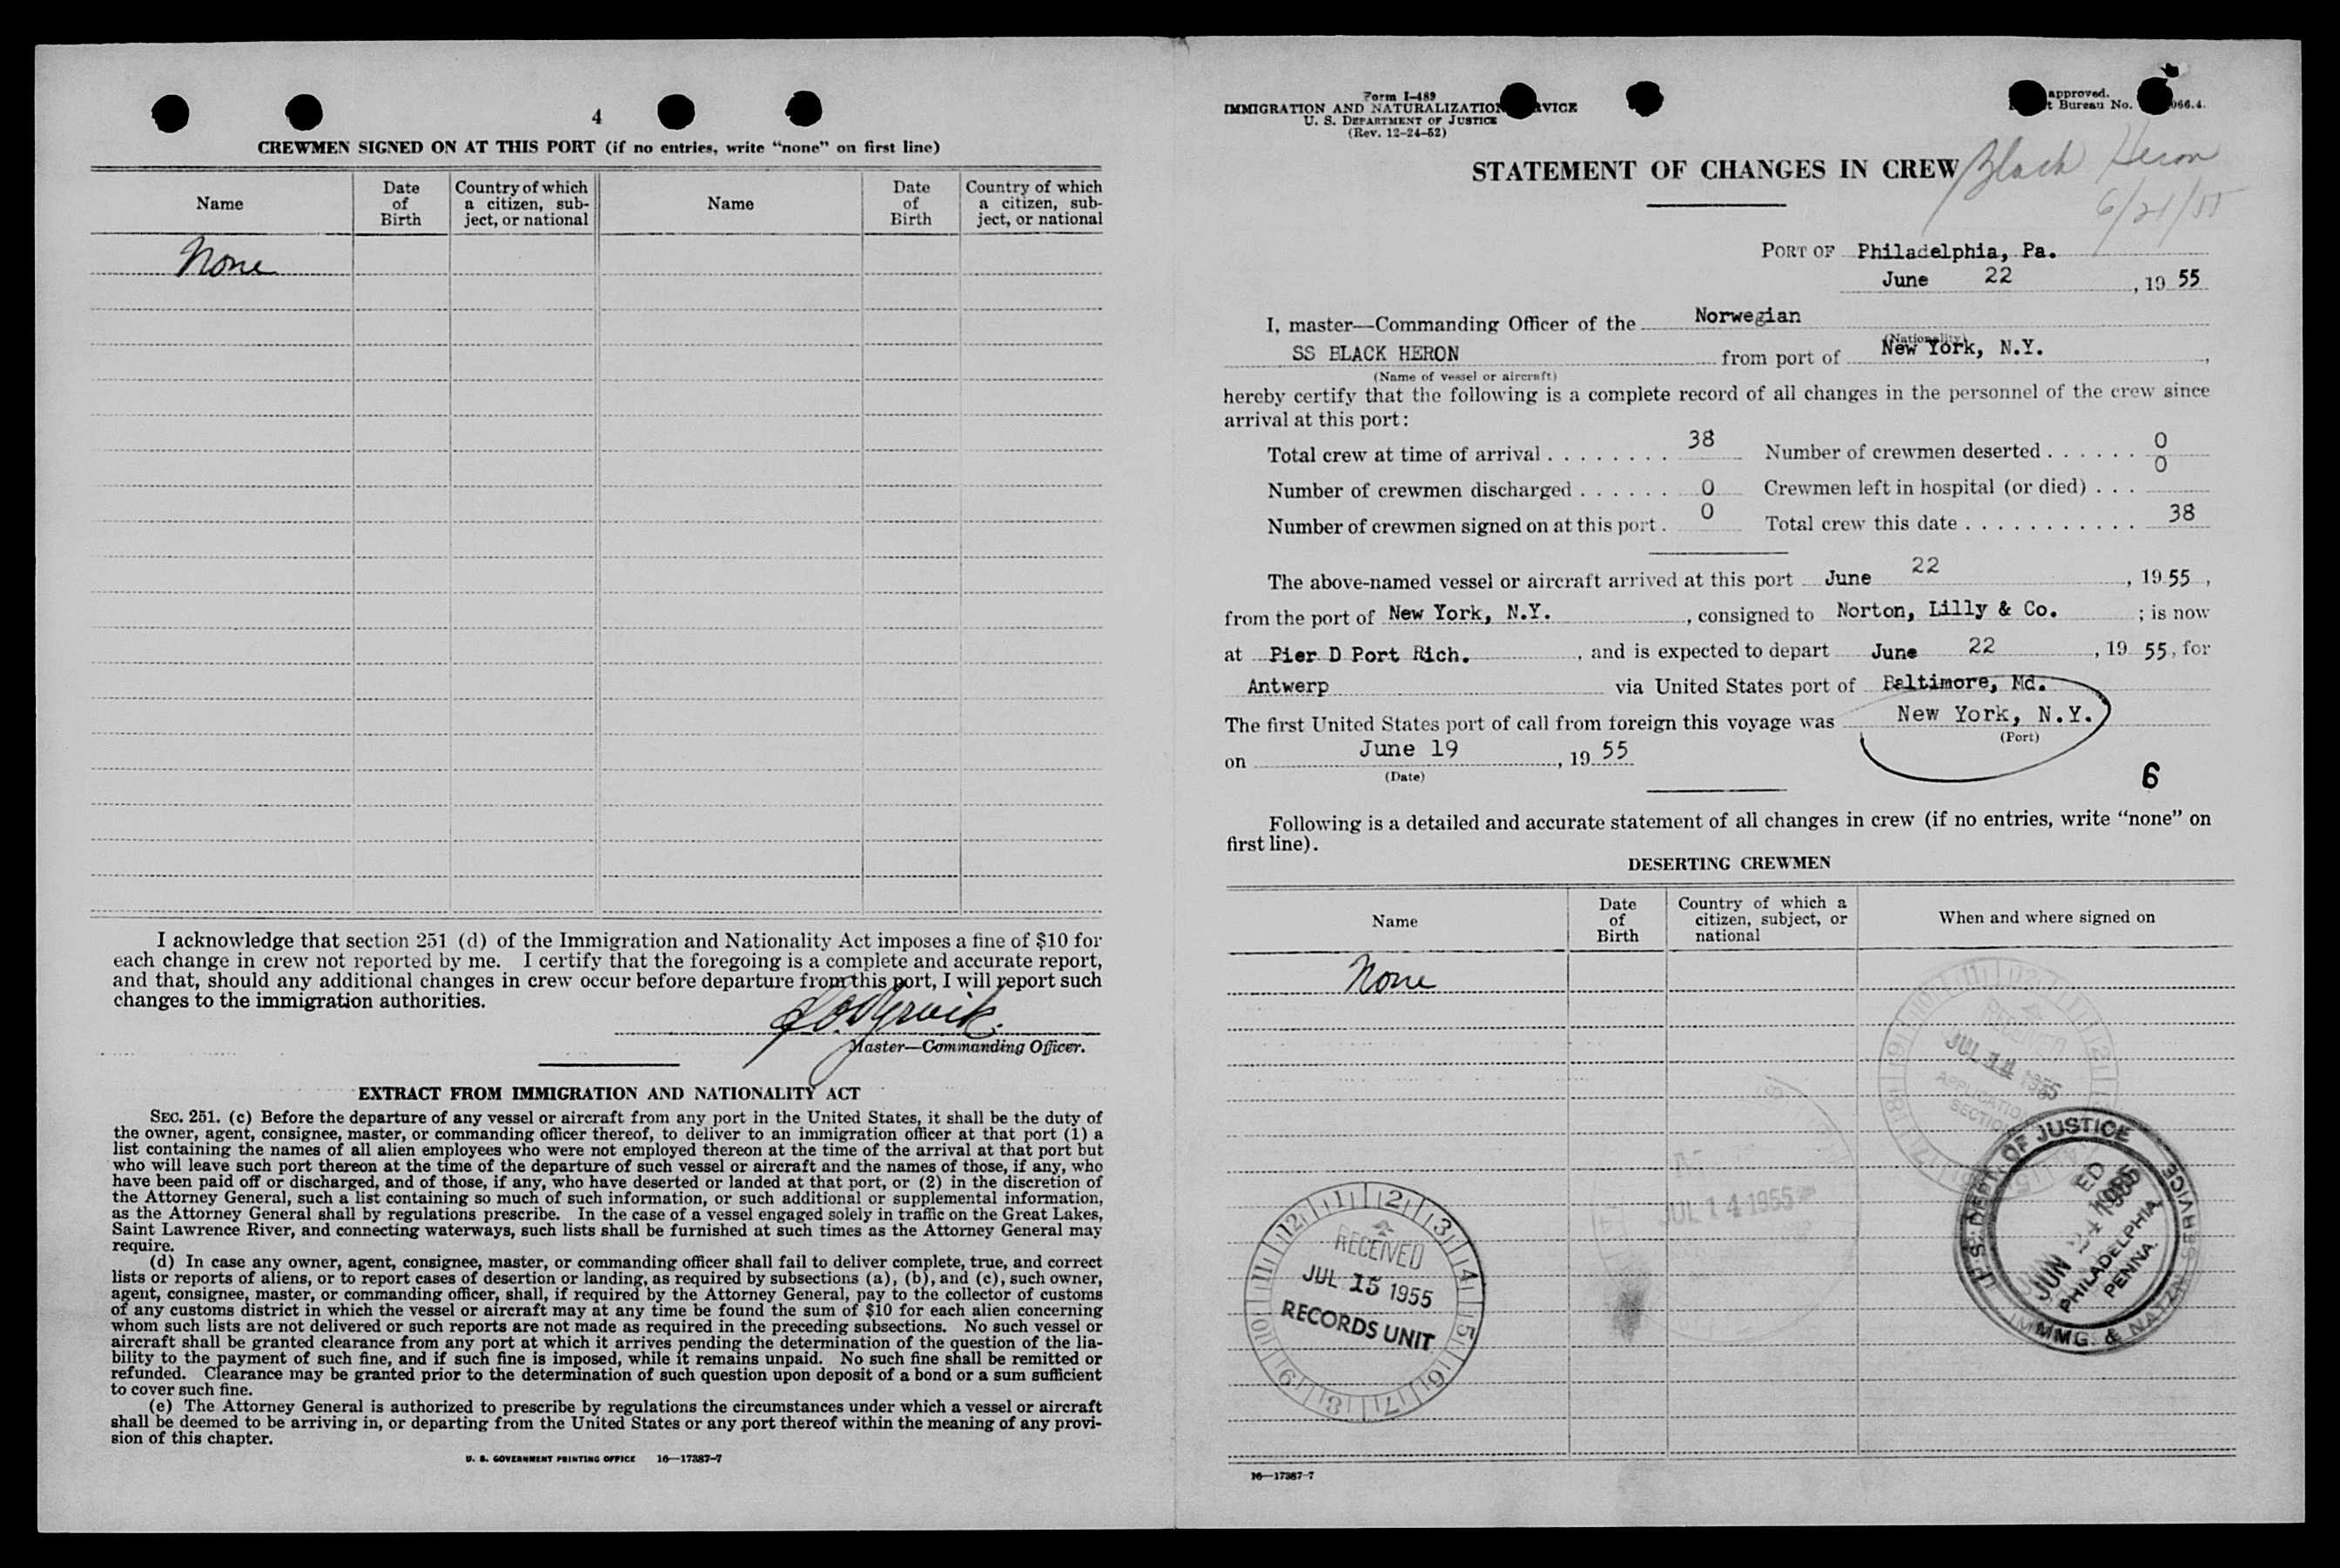 4
CREWMEN SIGNED ON AT THIS PORT (if no entries, write “none” on first line)
Name
Date of Birth
Country of which a citizen, subject, or national
Name
Date of Birth
Country of which a citizen, subject, or national
None
I acknowledge that section 251 (d) of the Immigration and Nationality Act imposes a fine of $10 for
each change in crew not reported by me. I certify that the foregoing is a complete and accurate report,
and that, should any additional changes in crew occur before departure from this port, I will report such
changes to the immigration authorities.
Master—Commanding Officer.
EXTRACT FROM IMMIGRATION AND NATIONALITY ACT
SEC. 251. (c) Before the departure of any vessel or aircraft from any port in the United States, it shall be the duty of
the owner, agent, consignee, master, or commanding officer thereof, to deliver to an immigration officer at that port (1) a
list containing the names of all alien employees who were not employed thereon at the time of the arrival at that port but
who will leave such port thereon at the time of the departure of such vessel or aircraft and the names of those, if any, who
have been paid off or discharged, and of those, if any, who have deserted or landed at that port, or (2) in the discretion of
the Attorney General, such a list containing so much of such information, or such additional or supplemental information,
as the Attorney General shall by regulations prescribe. In the case of a vessel engaged solely in traffic on the Great Lakes,
Saint Lawrence River, and connecting waterways, such lists shall be furnished at such times as the Attorney General may
require.
(d) In case any owner, agent, consignee, master, or commanding officer shall fail to deliver complete, true, and correct
lists or reports of aliens, or to report cases of desertion or landing, as required by subsections (a), (b), and (c), such owner,
agent, consignee, master, or commanding officer, shall, if required by the Attorney General, pay to the collector of customs
of any customs district in which the vessel or aircraft may at any time be found the sum of $10 for each alien concerning
whom such lists are not delivered or such reports are not made as required in the preceding subsections. No such vessel or
aircraft shall be granted clearance from any port at which it arrives pending the determination of the question of the lia-
bility to the payment of such fine, and if such fine is imposed, while it remains unpaid. No such fine shall be remitted or
refunded. Clearance may be granted prior to the determination of such question upon deposit of a bond or a sum sufficient
to cover such fine.
(e) The Attorney General is authorized to prescribe by regulations the circumstances under which a vessel or aircraft
shall be deemed to be arriving in, or departing from the United States or any port thereof within the meaning of any provi-
sion of this chapter.
U. S. GOVERNMENT PRINTING OFFICE 16—17387-7
Form I-489
IMMIGRATION AND NATURALIZATION SERVICE
U. S. DEPARTMENT OF JUSTICE
(Rev. 12-24-52)
approved.
Bureau No. 066.4.
STATEMENT OF CHANGES IN CREW
Black Heron
6/21/55
PORT OF Philadelphia, Pa.
June 22, 19 55
I, master—Commanding Officer of the Norwegian
(Nationality)
SS BLACK HERON from port of New York, N.Y.,
(Name of vessel or aircraft)
hereby certify that the following is a complete record of all changes in the personnel of the crew since
arrival at this port:
Total crew at time of arrival . . . . . . . . 38 Number of crewmen deserted . . . . . . 0
Number of crewmen discharged . . . . . . 0 Crewmen left in hospital (or died) . . . 0
Number of crewmen signed on at this port . 0 Total crew this date . . . . . . . . . . . 38
The above-named vessel or aircraft arrived at this port June 22, 19 55,
from the port of New York, N.Y., consigned to Norton, Lilly & Co. ; is now
at Pier D Port Rich., and is expected to depart June 22, 19 55, for
Antwerp via United States port of Baltimore, Md.
The first United States port of call from foreign this voyage was New York, N.Y.
(Port)
on June 19, 19 55
(Date)
6
Following is a detailed and accurate statement of all changes in crew (if no entries, write “none” on
first line).
DESERTING CREWMEN
Name
Date of Birth
Country of which a citizen, subject, or national
When and where signed on
None
RECEIVED
JUL 14 1955
APPLICATION
SECTION
JUL 14 1955
U. S. DEPT. OF JUSTICE
JUN 24 1955
PHILADELPHIA
PENNA.
IMMG. & NATZN. SERVICE
RECEIVED
JUL 15 1955
RECORDS UNIT
16—17387-7